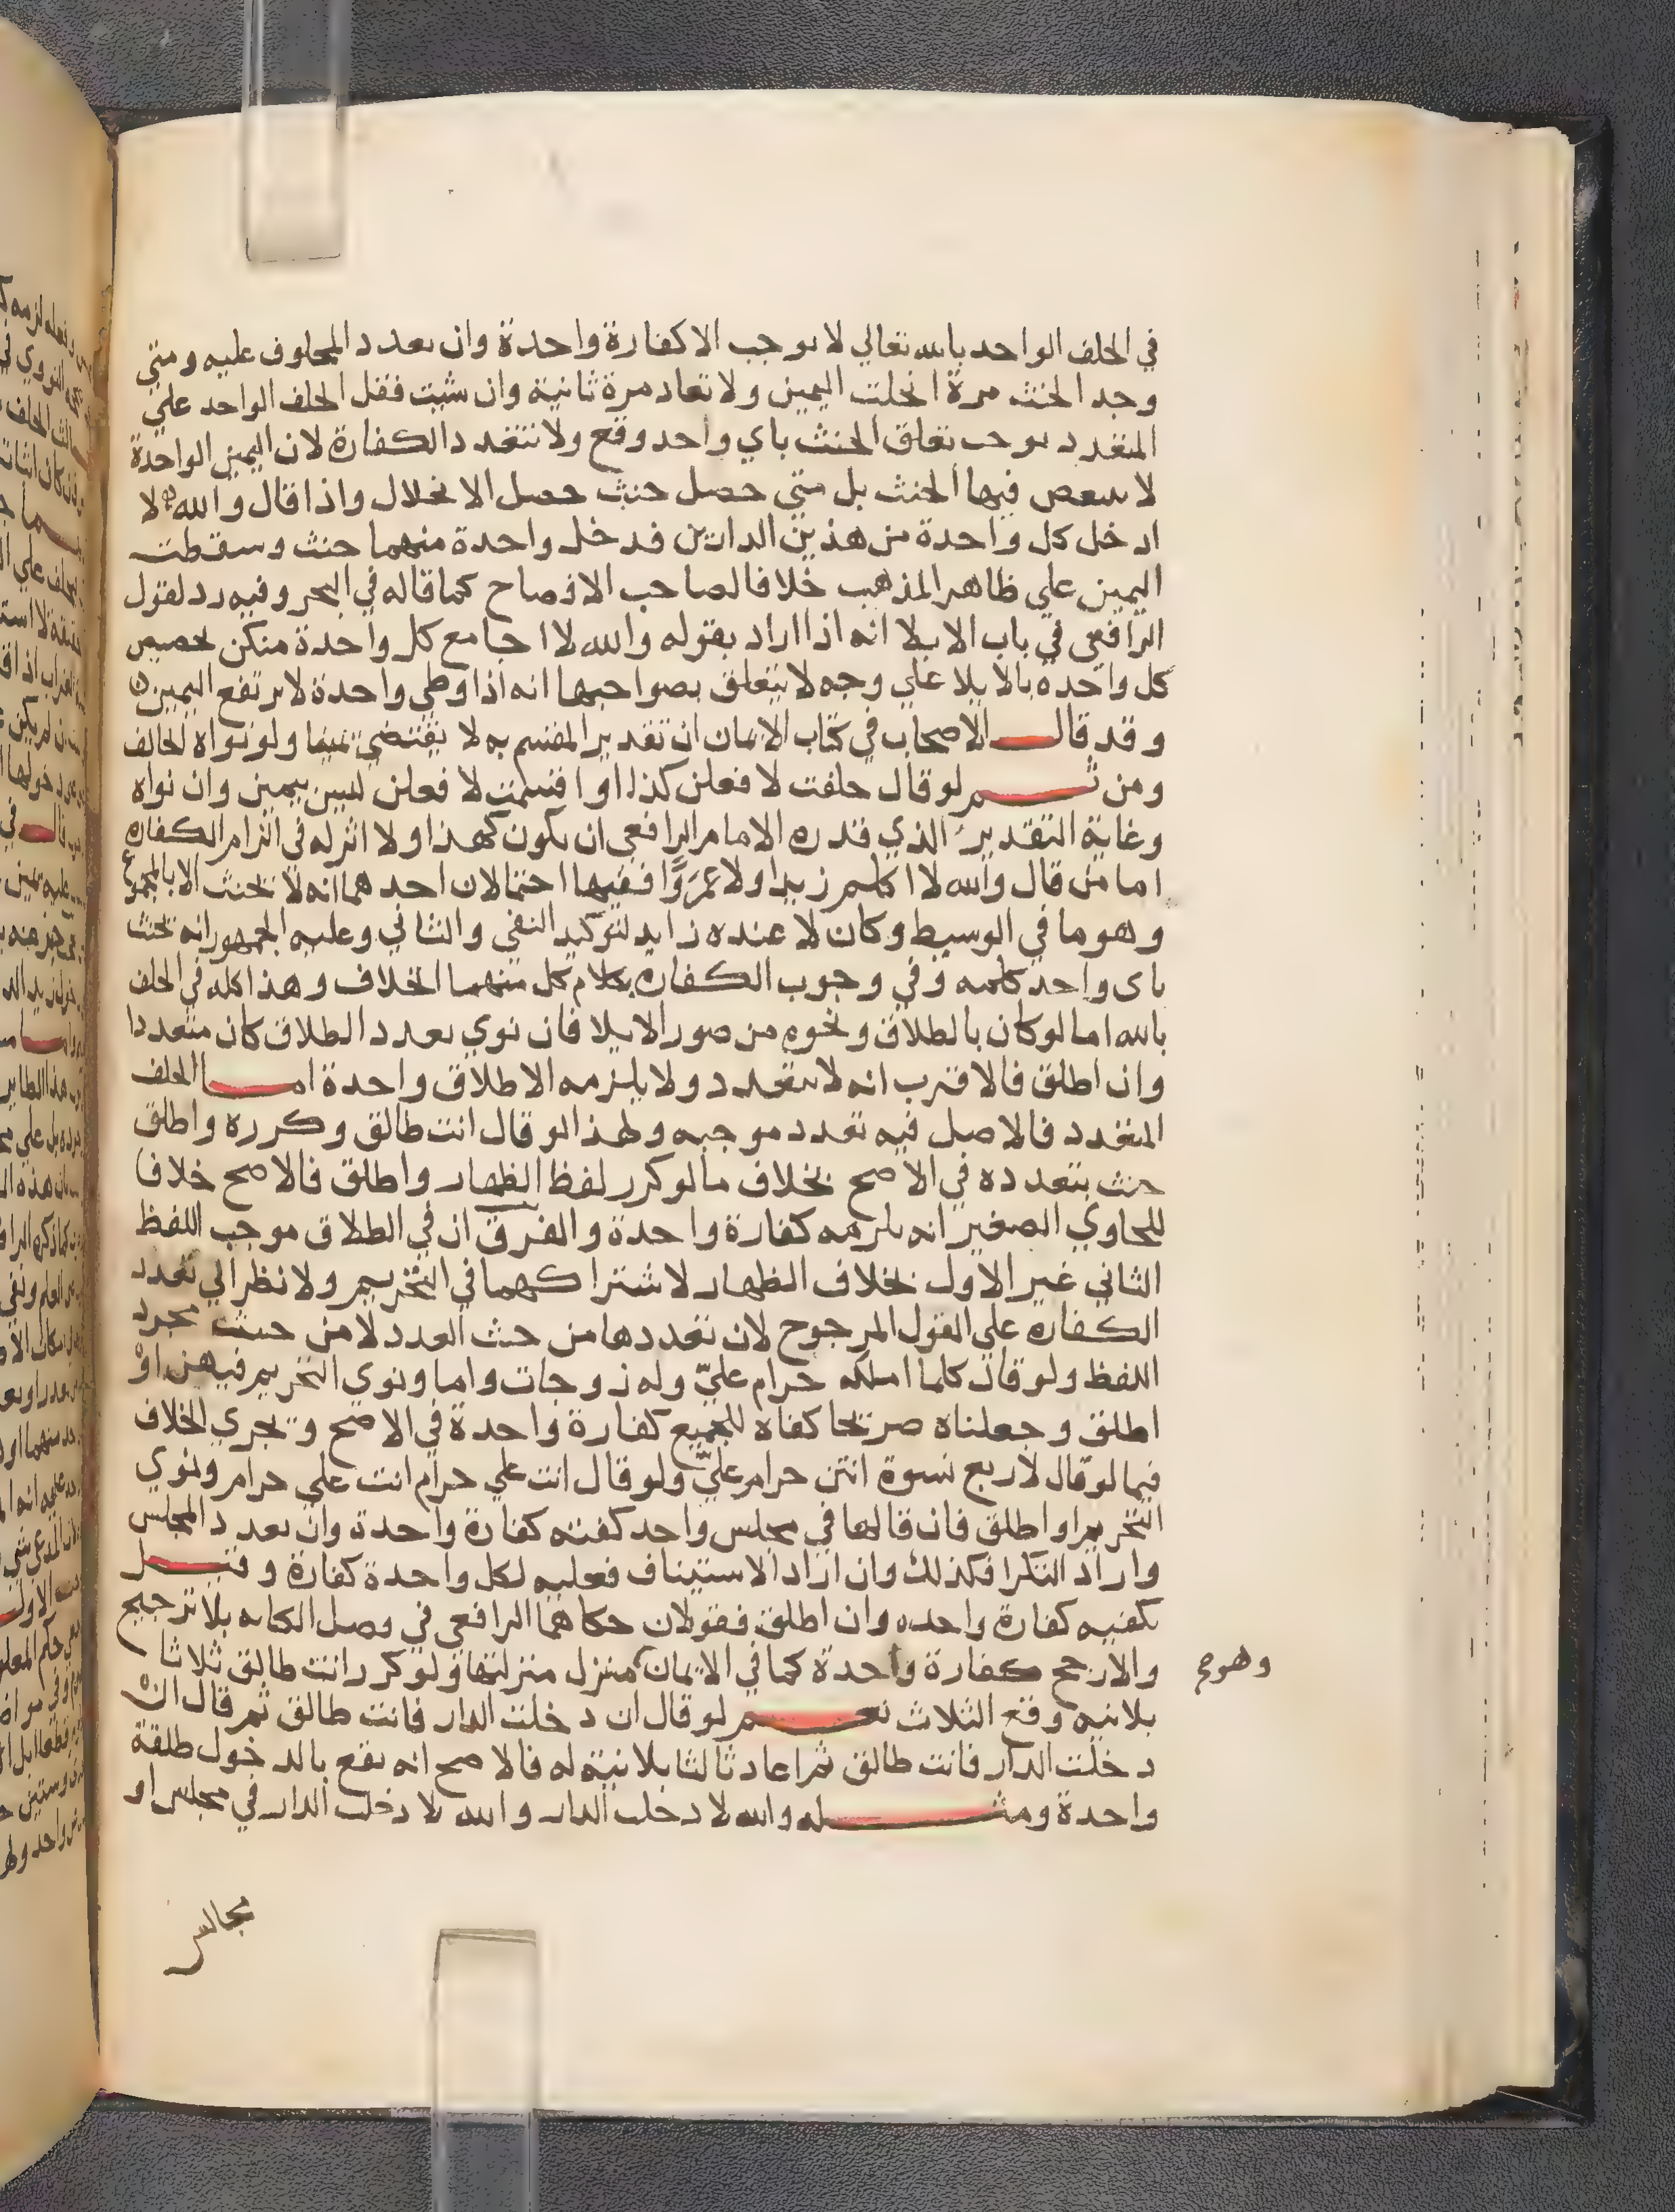 في الحلف الواحد بالله تعالي لا يوجب الا كفارة واحدة وان تعدد المحلوف عليه ومتي
وجد الحنث مرة انحلت اليمين ولا تعاد مرة ثانية وان شيت فقل الحلف الواحد علي
المتعدد يوجب تعلق الحنث باي واحد وقع ولا تتعدد الكفارة لان اليمين الواحدة
لا يتبعض فيها الحنث بل متي حصل حنث حصل الانحلال واذا قال والله لا
ادخل كل واحدة من هذين الدارين فدخل واحدة منهما حنث وسقطت
اليمين علي ظاهر المذهب خلافا لصاحب الافصاح كما قاله في البحر وفيه رد لقول
الرافعي في باب الايلا انه اذا اراد بقوله والله لا اجامع كل واحدة منكن تخصيص
كل واحدة بالايلا علي وجه لا يتعلق بصواحبها انه اذا وطي واحدة لا يرتفع اليمين
وقد قال الاصحاب في كتاب الايمان ان تقدير المقسم به لا يقتضي يمينا ولو نواه الحالف
ومن ثم لو قال حلفت لافعلن كذا او اقسمت لافعلن ليس بيمين وان نواه
وغاية التقدير الذي قدره الامام الرافعي ان يكون كهذا ولا اثر له في التزام الكفاره
اما من قال والله لا اكلم زيدا ولا عمروا ففيها احتمالان احدهما انه لا يحنث الا بالمجموع
وهو ما في الوسيط وكان لا عنده زايد لتوكيد النفي والثاني وعليه الجمهور انه يحنث
باي واحد كلمه وفي وجوب الكفاره بكلام كل منهما الخلاف وهذا كله في الحلف
بالله اما لو كان بالطلاق ونحوه من صور الايلا فان نوي تعدد الطلاق كان متعددا
وان اطلق فالاقرب انه لا يتعدد ولا يلزمه الا طلاق واحدة اما الحلف
المتعدد فالاصل فيه تعدد موجبه ولهذا لو قال انت طالق وكرره واطلق
حنث بتعدده في الاصح بخلاف ما لو كرر لفظ الظهار واطلق فالاصح خلافا
للحاوي الصغير انه يلزمه كفارة واحدة والفرق ان في الطلاق موجب اللفظ
الثاني غير الاول بخلاف الظهار لاشتراكهما في التحريم ولا نظر الي تعدد
الكفاره علي القول المرجوح لان تعددها من حيث العدد لا من حيث مجرد
اللفظ ولو قال كلما املكه حرام عليّ وله زوجات واما ونوي التحريم فيهن او
اطلق وجعلناه صريحا كفاه للجميع كفارة واحدة في الاصح ويجري الخلاف
فيما لو قال لاربع نسوة انتن حرام عليّ ولو قال انت علي حرام انت علي حرام ونوي
التحريم او اطلق فان قالها في مجلس واحد كفته كفارة واحدة وان تعدد المجلس
واراد التكرا فكذلك وان اراد الاستيناف فعليه لكل واحدة كفارة وقيل
يكفيه كفارة واحده وان اطلق فقولان حكاهما الرافعي في وصل الكنايه بلا ترجيح
والارجح كفارة واحدة كما في الايمان منزل منزلتها ولو كرر انت طالق ثلاثا
وهو صح
بلا نيه وقع الثلاث نعم لو قال ان دخلت الدار فانت طالق ثم قال ان
دخلت الدار فانت طالق ثم اعاد ثالثا بلا نية له فالاصح انه يقع بالدخول طلقة
واحدة ومثله والله لا دخلت الدار والله لا دخلت الدار في مجلس او
مجالس